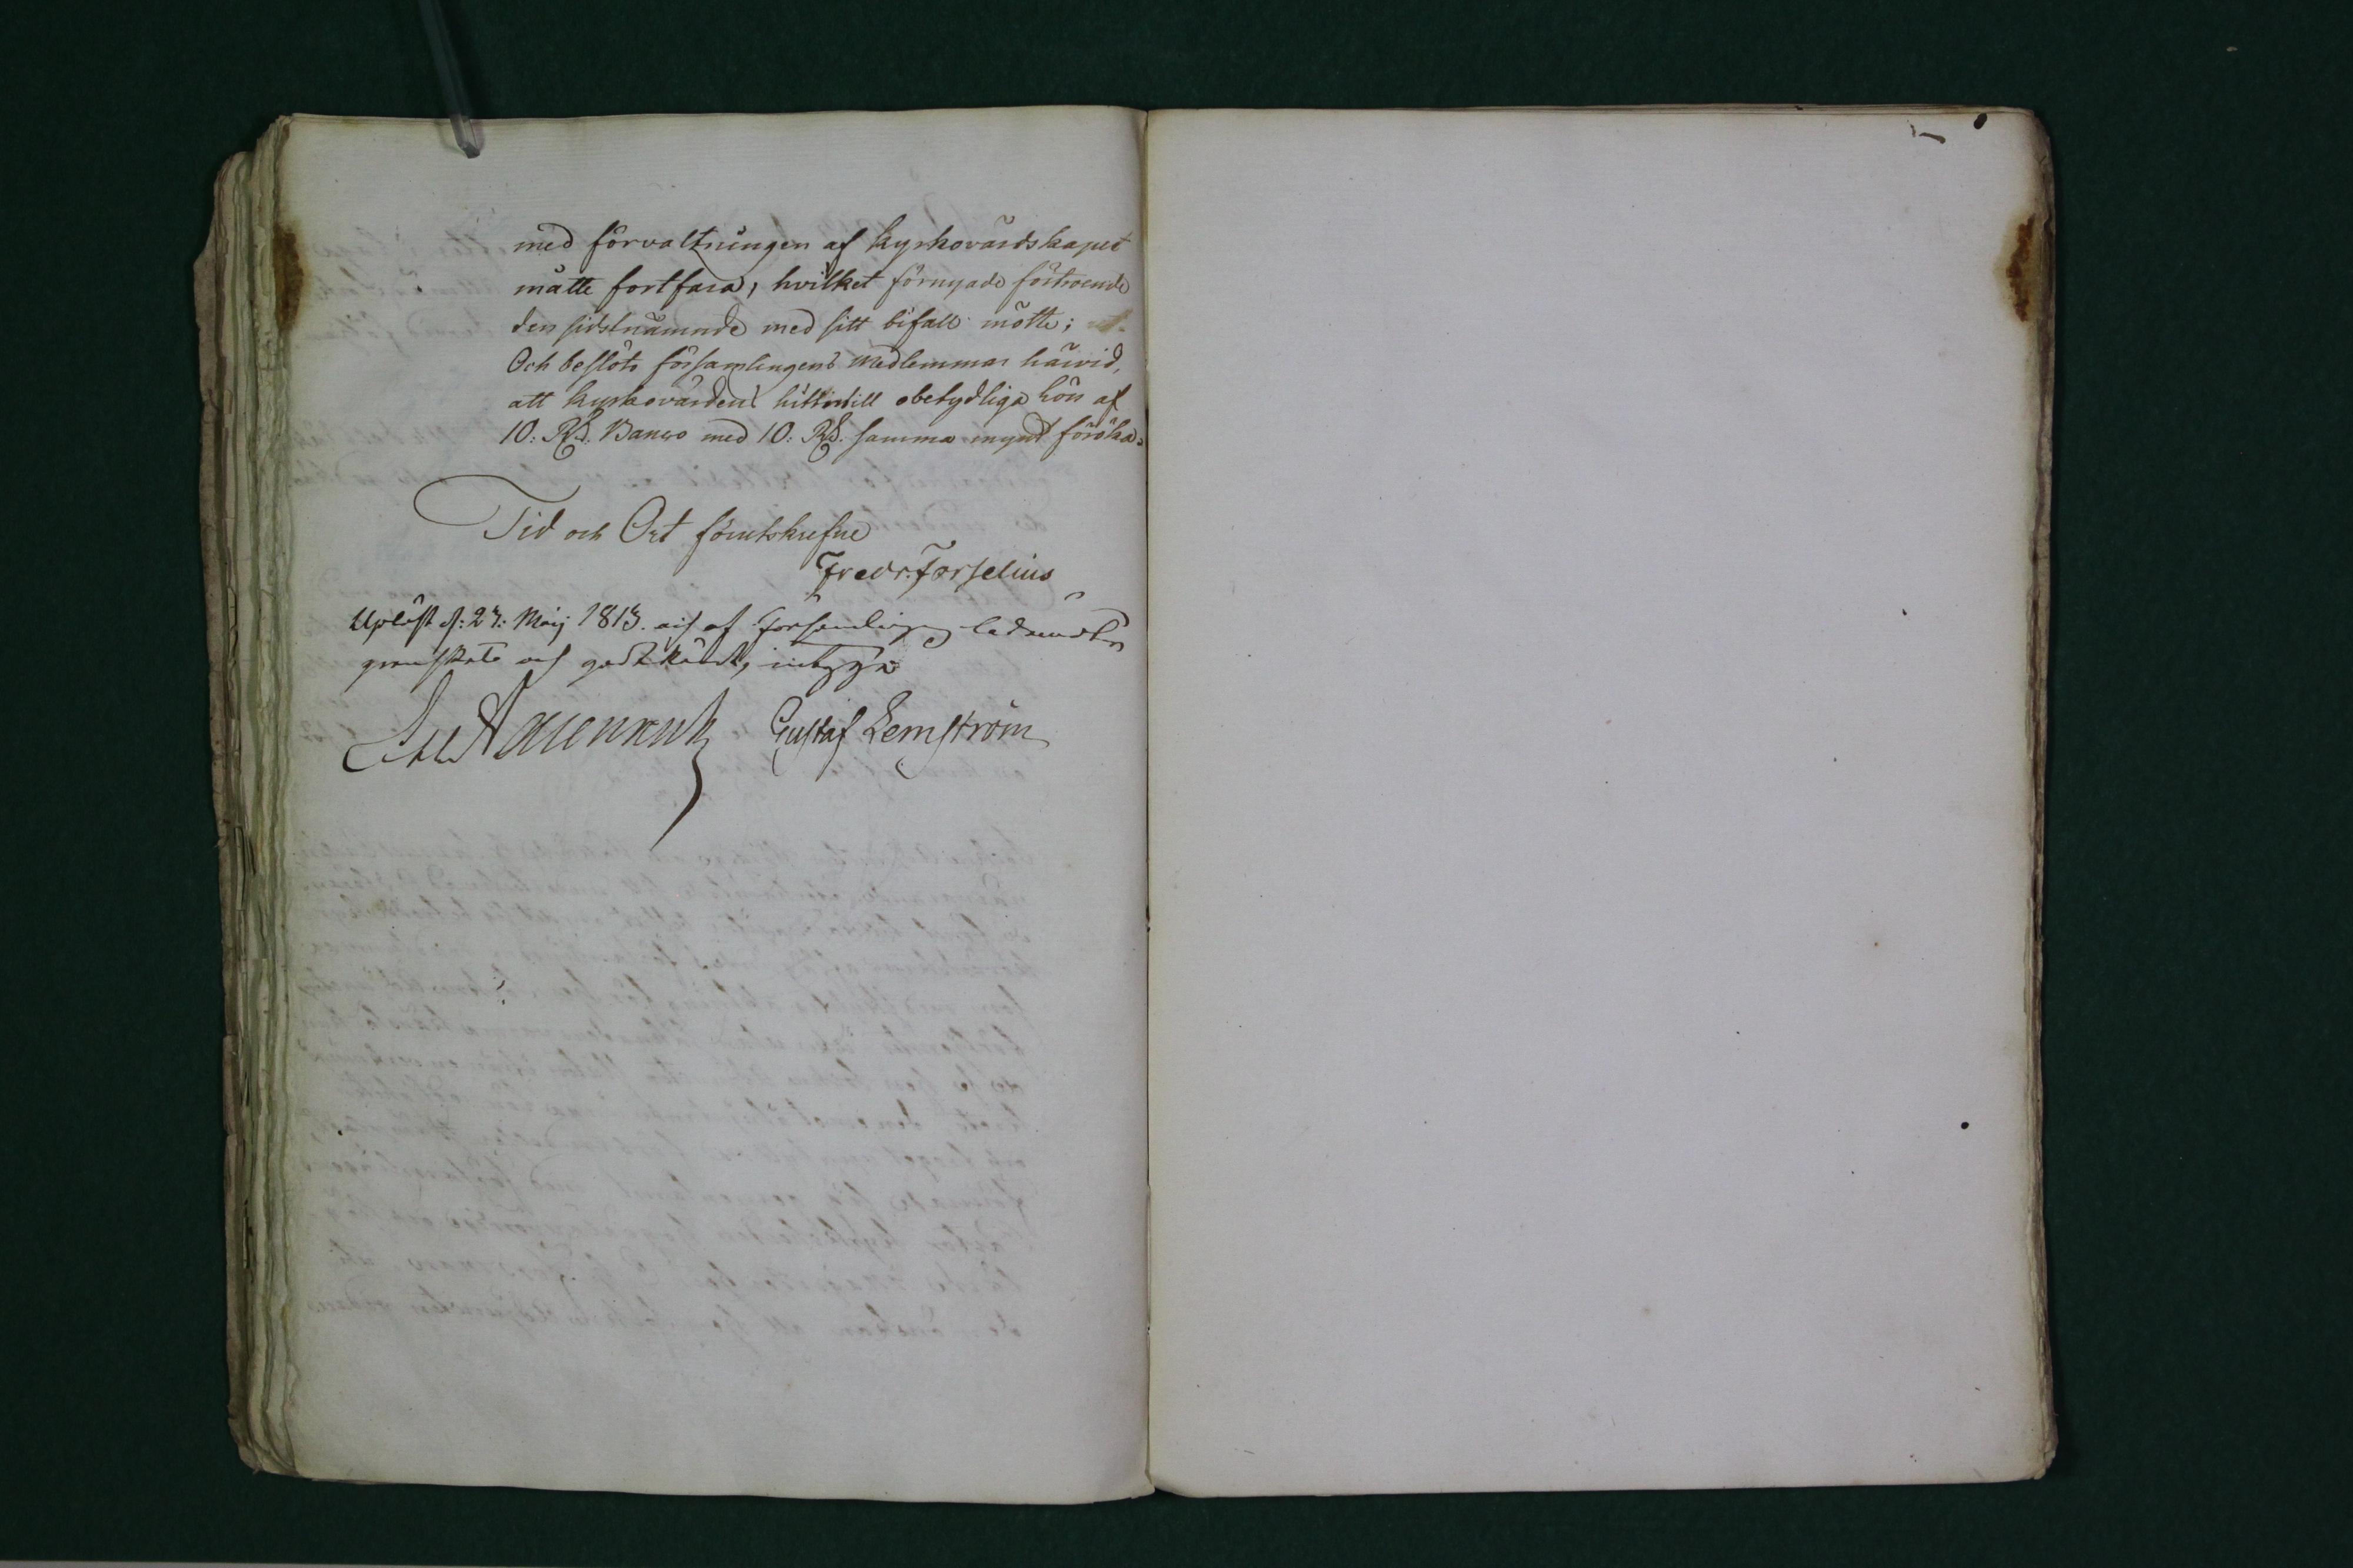 med förvaltningen af kyrkovärdskapet
måtte fortfara, hvilket förnyade förtroende
den sidstnämnde med sitt bifall mötte;
Och beslöts församlingens medlemmar härvid,
att kyrkovärdens hittintill obetydliga lön af
10: Rd. Banco med 10: Rd. samma mynt förökas.
Tid och Ort förutskrefne
Fredr. Forselius
Upläst d: 27: Maij 1813. och af församlingens ledamöter
granskat och godtkändt, intyga
Gustaf Lemström